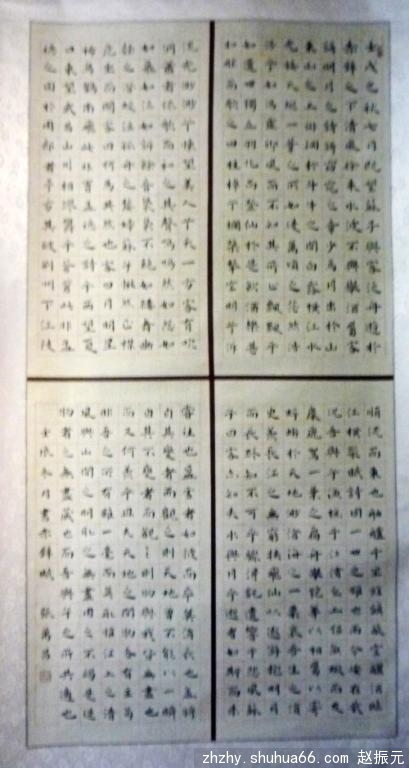 壬戌之秋七月既望蘇子與客泛舟遊於
赤壁之下清風徐來水波不興舉酒屬客
誦明月之詩歌窈窕之章少焉月出於山
東山之上徘徊於斗牛之間白露橫江水
光接天縱一葦之所如凌萬頃之茫然浩
浩乎如馮虛御風而不知其所止飄飄乎
如遺世獨立羽化而登仙於是飲酒樂甚
扣舷而歌之歌曰桂棹兮蘭槳擊空明兮泝
流光渺渺兮予懷望美人兮天一方客有吹
洞簫者倚歌而和之其聲嗚嗚然如怨如
慕如泣如訴餘音裊裊不絕如縷舞幽
壑之潛蛟泣孤舟之嫠婦蘇子愀然正襟
危坐而問客曰何為其然也客曰月明星
稀烏鵲南飛此非曹孟德之詩乎西望夏
口東望武昌山川相繆鬱乎蒼蒼此非孟
德之困於周郎者乎方其破荊州下江陵
順流而東也舳艫千里旌旗蔽空釃酒臨
江橫槊賦詩固一世之雄也而今安在哉
況吾與子漁樵於江渚之上侶魚蝦而友
麋鹿駕一葉之扁舟舉匏樽以相屬寄
蜉蝣於天地渺滄海之一粟哀吾生之須
臾羨長江之無窮挾飛仙以遨遊抱明月
而長終知不可乎驟得託遺響於悲風蘇
子曰客亦知夫水與月乎逝者如斯而未
嘗往也盈虛者如彼而卒莫消長也蓋將
自其變者而觀之則天地曾不能以一瞬
自其不變者而觀之則物與我皆無盡也
而又何羨乎且夫天地之間物各有主苟
非吾之所有雖一毫而莫取惟江上之清
風與山間之明月取之無禁用之不竭是造
物者之無盡藏也而吾與子之所共適也
壬辰冬月書赤壁賦 張萬昌
zhzhy.shuhua66.com 赵振元